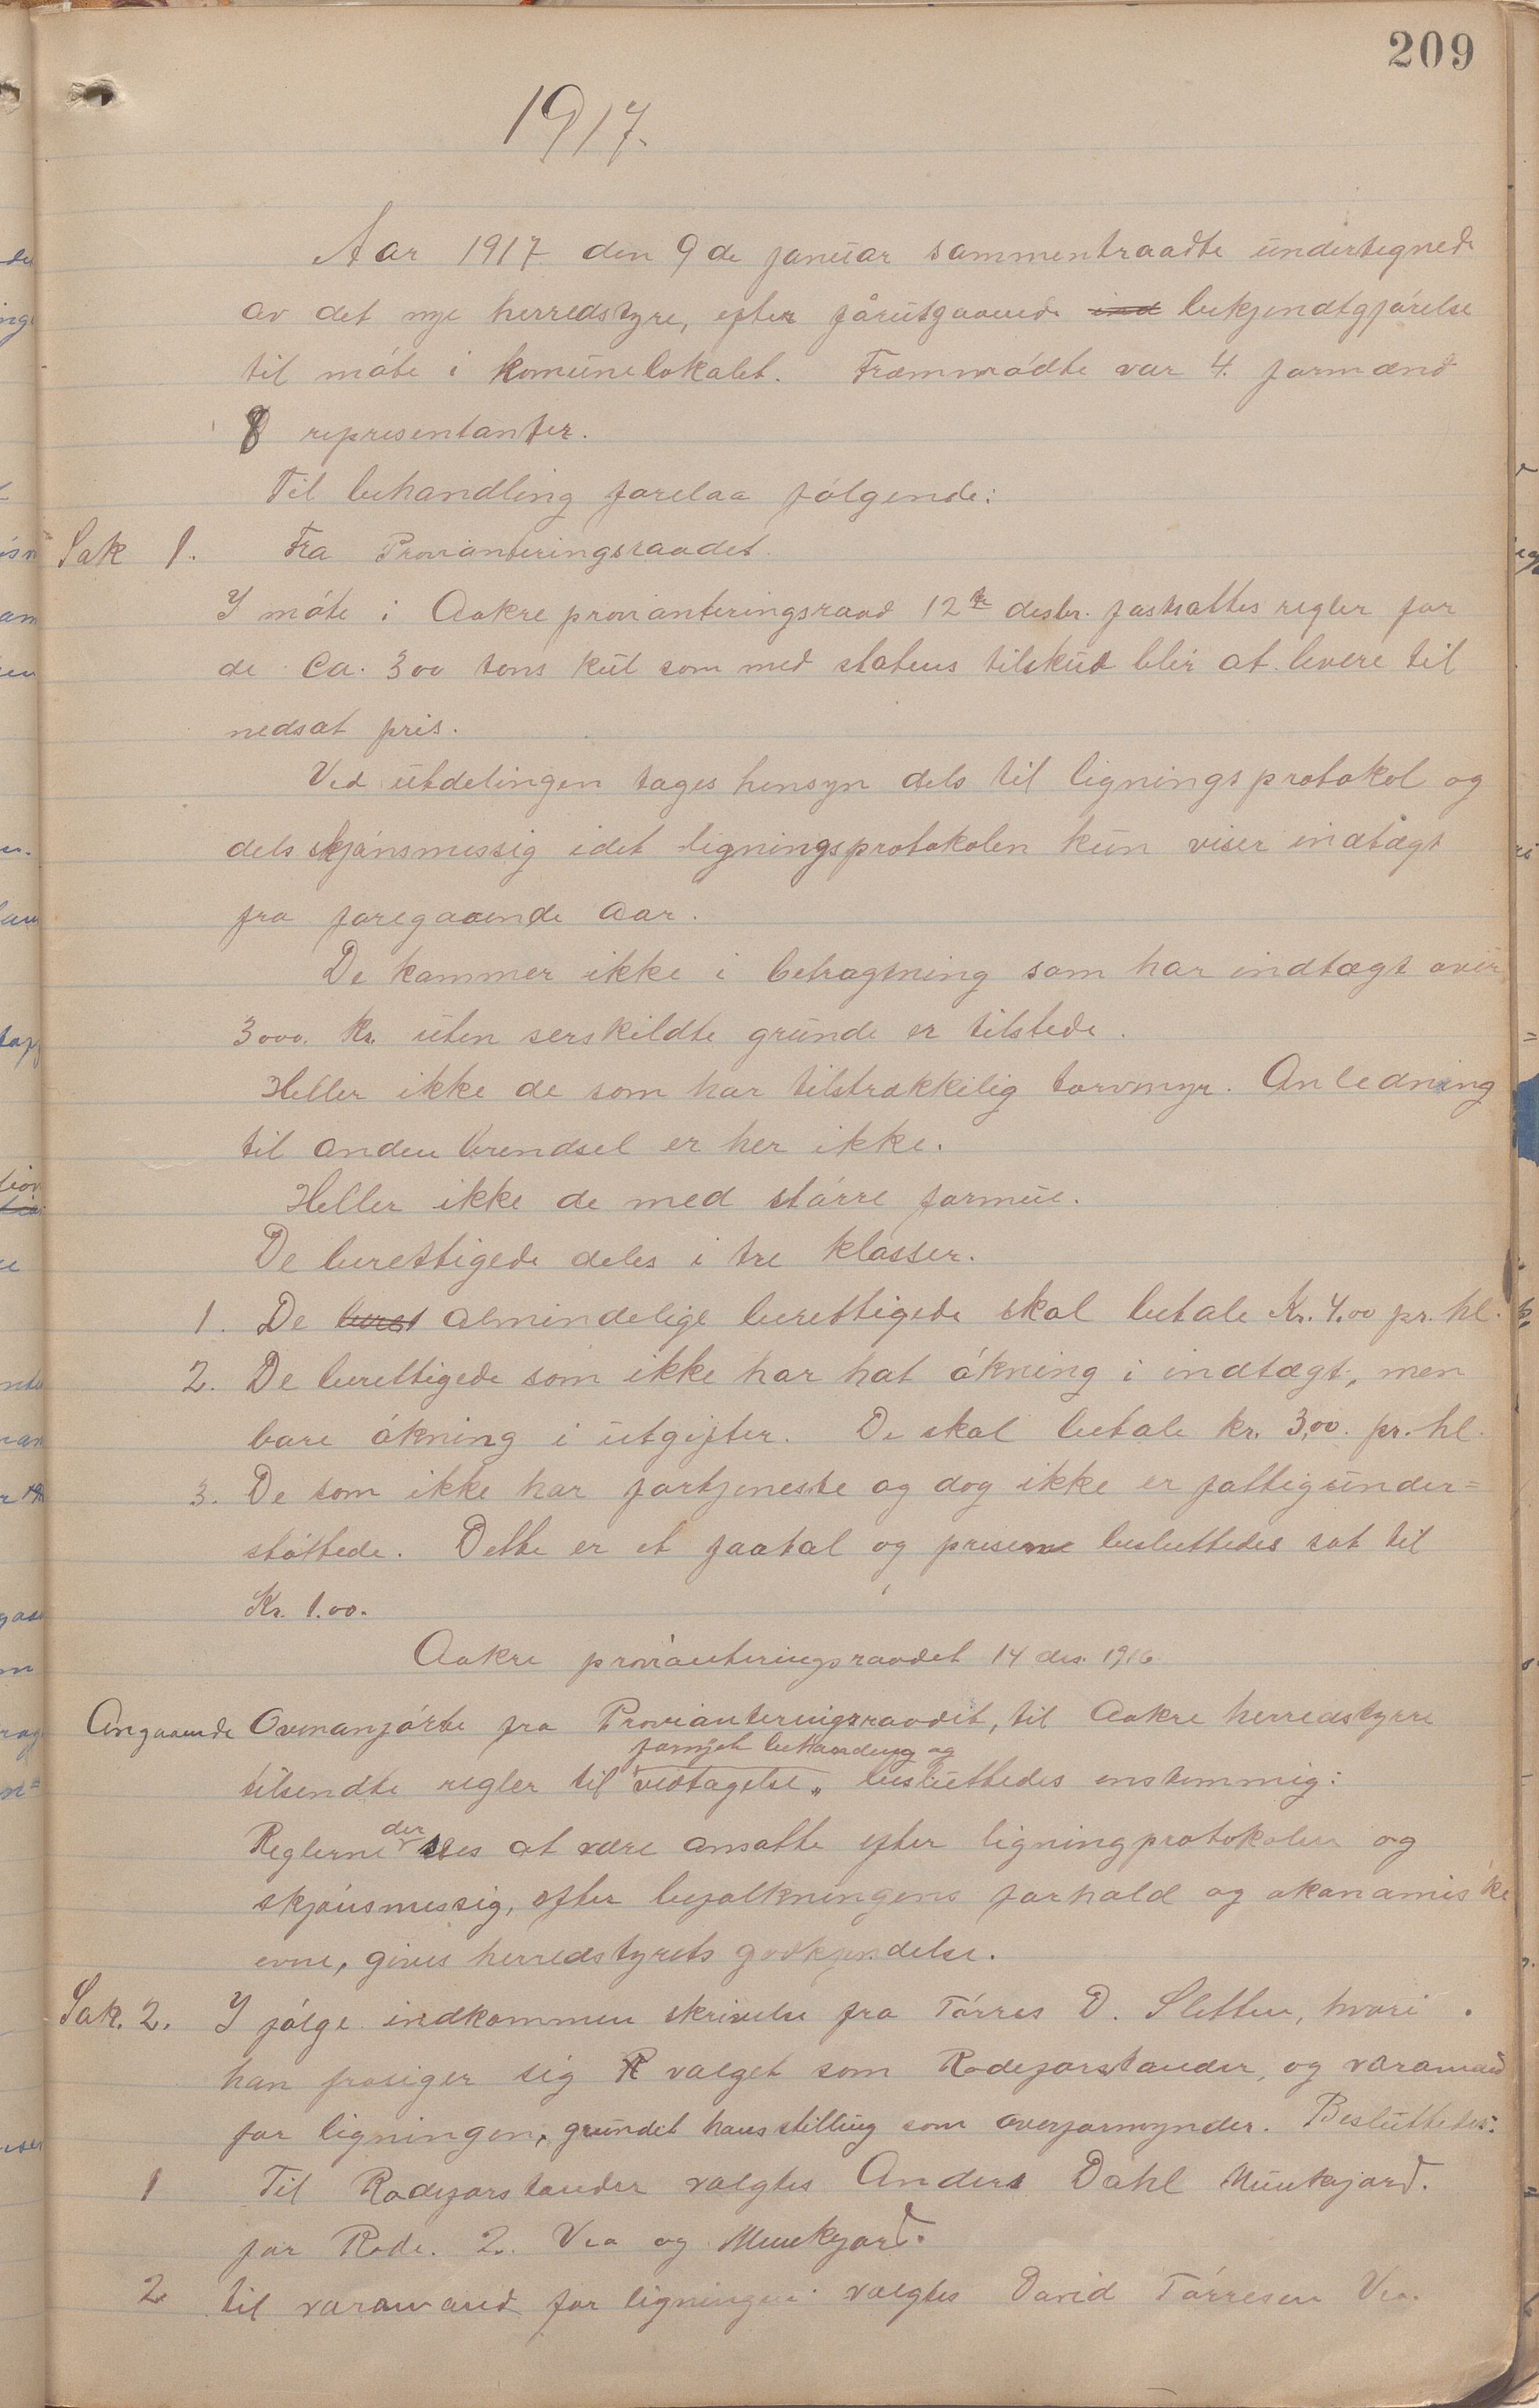 209
1917.
Aar 1917 den 9de januar sammentraadte undertegnede
av det nye herredstyre, efter fårutgaaende ind bekjendtgjørelse
til møte i komunelokalet. Fræmmødte var 4. formænd
8 representanter.
Til behandling forelaa følgende:
Sak 1. Fra Provianteringsraadet.
I møte i Aakre provianteringsraad 12te desbr. fastsattes regler for
de ca. 300 tons kul som med statens tilskud blir at levere til
nedsat pris.
Ved utdelingen tages hensyn dels til ligningsprotokol og
dels skjønsmessig idet ligningsprotokolen kun viser indtægt
fra foregaaende aar.
De kommer ikke i betragtning som har indtægt over
3000. Kr. uten serskildte grunde er tilstede.
Heller ikke de som har tilstrækkilig torvmyr. Anledning
til anden brendsel er her ikke.
Heller ikke de med større formue.
De berettigede deles i tre klasser.
1. De beret almindelige berettigede skal betale Kr. 4.00 pr. hl.
2. De berettigede som ikke har hat økning i indtægt, men
bare økning i utgifter. De skal betale kr. 3,00. pr. hl.
3. De som ikke har fortjeneste og dog ikke er fattigunder=
støttede. Dette er et faatal og prisene besluttedes sat til
Kr. 1.00.
Aakre provianteringsraadet 14 des. 1916.
Angaaende Ovenanførte fra Provianteringsraadet, til Aakre herredstyre
fornjet behandling og
tilsendte regler til vedtagelse„ besluttedes enstemmig:
der
Reglerne sees at være ansatte efter ligningprotokolen og
skjønsmessig, efter befolkningens forhold og økonomiske
evne, gives herredstyrets godkjendelse.
Sak. 2. I følge indkommen skrivelse fra Tørres D. Sletten, hvori
han frasiger sig valget som Rodeforstander, og varamand
for ligningen, grundet hans stilling som overformynder. Besluttedes:
1 Til Rodeforstander valgtes Anders Dahl Munkejord.
for Rode. 2. Vea og Munkejord.
2 til varamand for ligningen valgtes David Tørresen Vea.